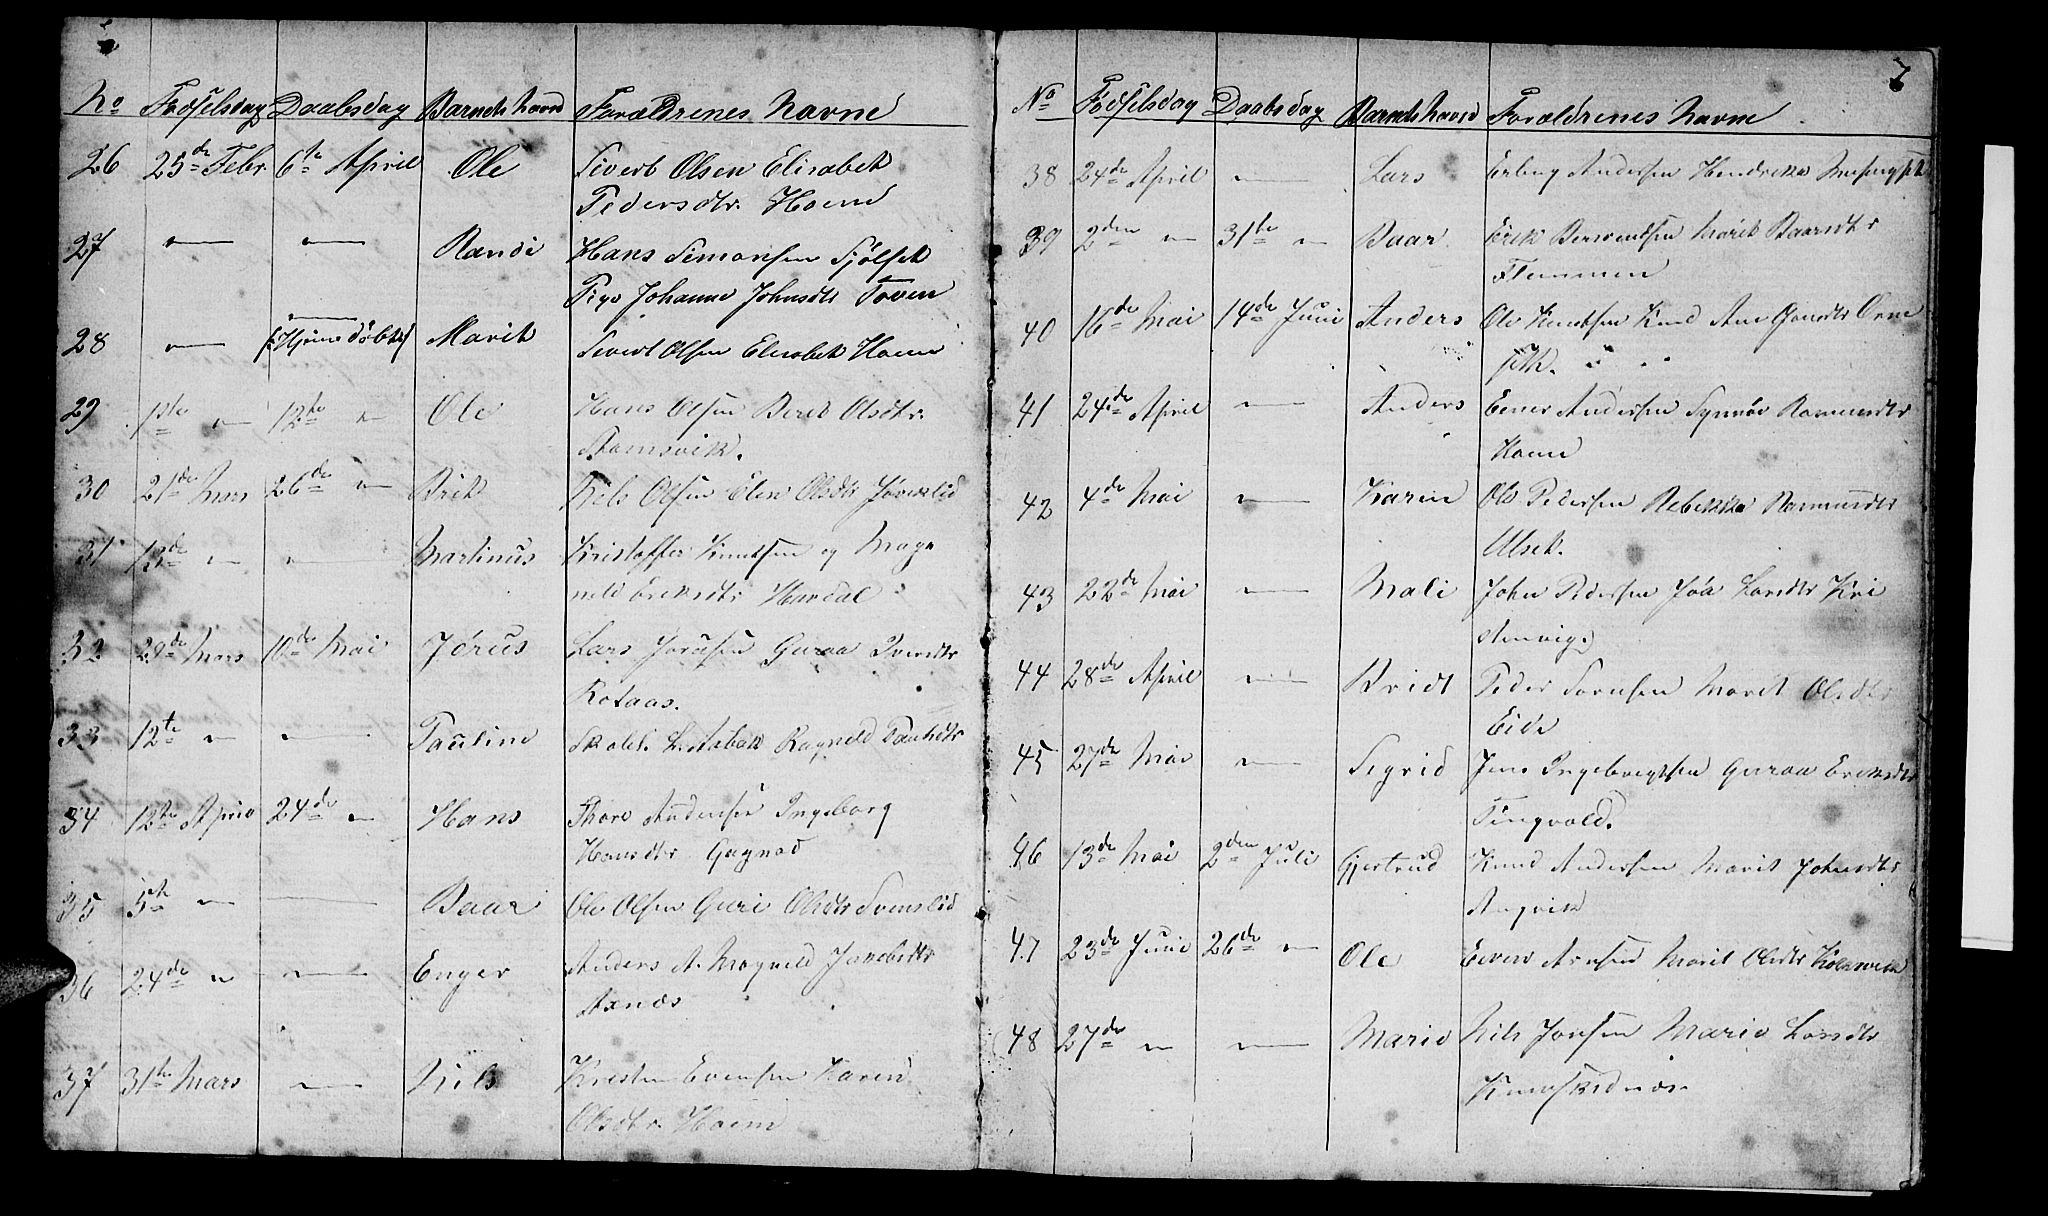 No Fødselsdag Daabsdag Barnets Navn Forældrenes Navne
26 25de Febr. 6te April Ole Sivert Olsen Elisabet
Pedersdtr. Hoem
27 — — Randi Hans Simonsen Sjølset
Pige Johanne Johnsdtr Toven
28 — — (Hjemedøbt) Marit Sivert Olsen Elisabet Hoem
29 1ste — 12te — Ole Hans Olsen Beret Olsdtr.
Ramsvik.
30 21de Mars 26de — Brit Nils Olsen Elen Olsdtr
31 13de — — Martinus Kristoffer Knutsen og Mag
nild Eriksdtr Havdal
32 28de Mars 10de Mai Jørus Lars Guroa
Rotaas.
33 12te — — Pauline Skolel. Ragnild
34 12te April 24de — Hans Thore Andersen Ingeborg
Hansdtr. Gagnad
35 5te — — Baar Ole Olsen Guri Olsdtr Svenslid
36 24de — — Enger Anders A. Magnild Jakobsdtr
Axnes
37 31te Mars — Nils Kristen Evensen Karen
Olsdtr. Hoem
7
No Fødselsdag Daabsdag Barnets Navn Forældrenes Navne
38 24de April — Lars Erling Andersen Hendrikka
39 2den — 31te — Baar Erik Bersvendsen Marit Baarsdtr
Flemmen
40 16de Mai 14de Juni Anders Ole Knutsen Ane
41 24de April — Anders Einer Andersen Synnøv Rasmusdtr
Hoem
42 4de Mai — Karen Ole Pedersen Rebekka Rasmusdtr
Ulset.
43 22de Mai — Mali John Pedersen Joa Larsdtr Kri
stenvig.
44 28de April — Bridt Peder Marit Olsdtr
Eide
45 27de Mai — Sigrid Jens Ingebregtsen Guroa Eriksdtr
Tingvold.
46 13de Mai 2den Juli Gjertrud Knud Andersen Marit Johnsdtr
Angvik
47 23de Juni 26de — Ole Even Arnsen Marit Olsdtr
48 27de — — Marie Nils Jonsen Marie Larsdtr